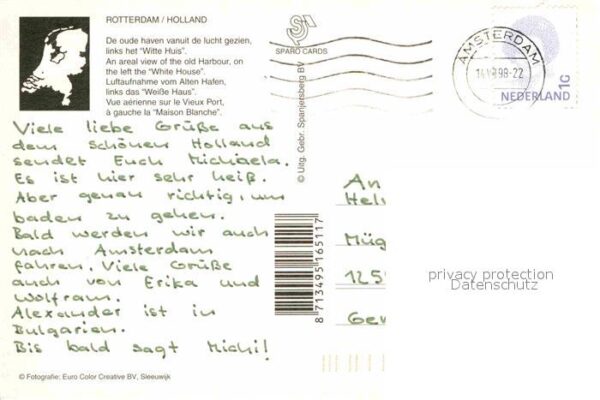 ROTTERDAM / HOLLAND
De oude haven vanuit de lucht gezien,
links het "Witte Huis".
An areal view of the old Harbour, on
the left the "White House".
Luftaufnahme vom Alten Hafen,
links das "Weiße Haus".
Vue aérienne sur le Vieux Port,
à gauche la "Maison Blanche".
SPARO CARDS
© Uitg. Gebr. Spanjersberg BV
AMSTERDAM
98-22
NEDERLAND
1G
Viele liebe Grüße aus
dem schönen Holland
sendet Euch Michaela.
Es ist hier sehr heiß.
Aber genau richtig, um
baden zu gehen.
Bald werden wir auch
nach Amsterdam
fahren. Viele Grüße
auch von Erika und
Wolfram.
Alexander ist in
Bulgarien.
Bis bald sagt Michi!
8 713495 165117
An
Hel
Müg
125
Gew
privacy protection
Datenschutz
© Fotografie: Euro Color Creative BV, Sleeuwijk